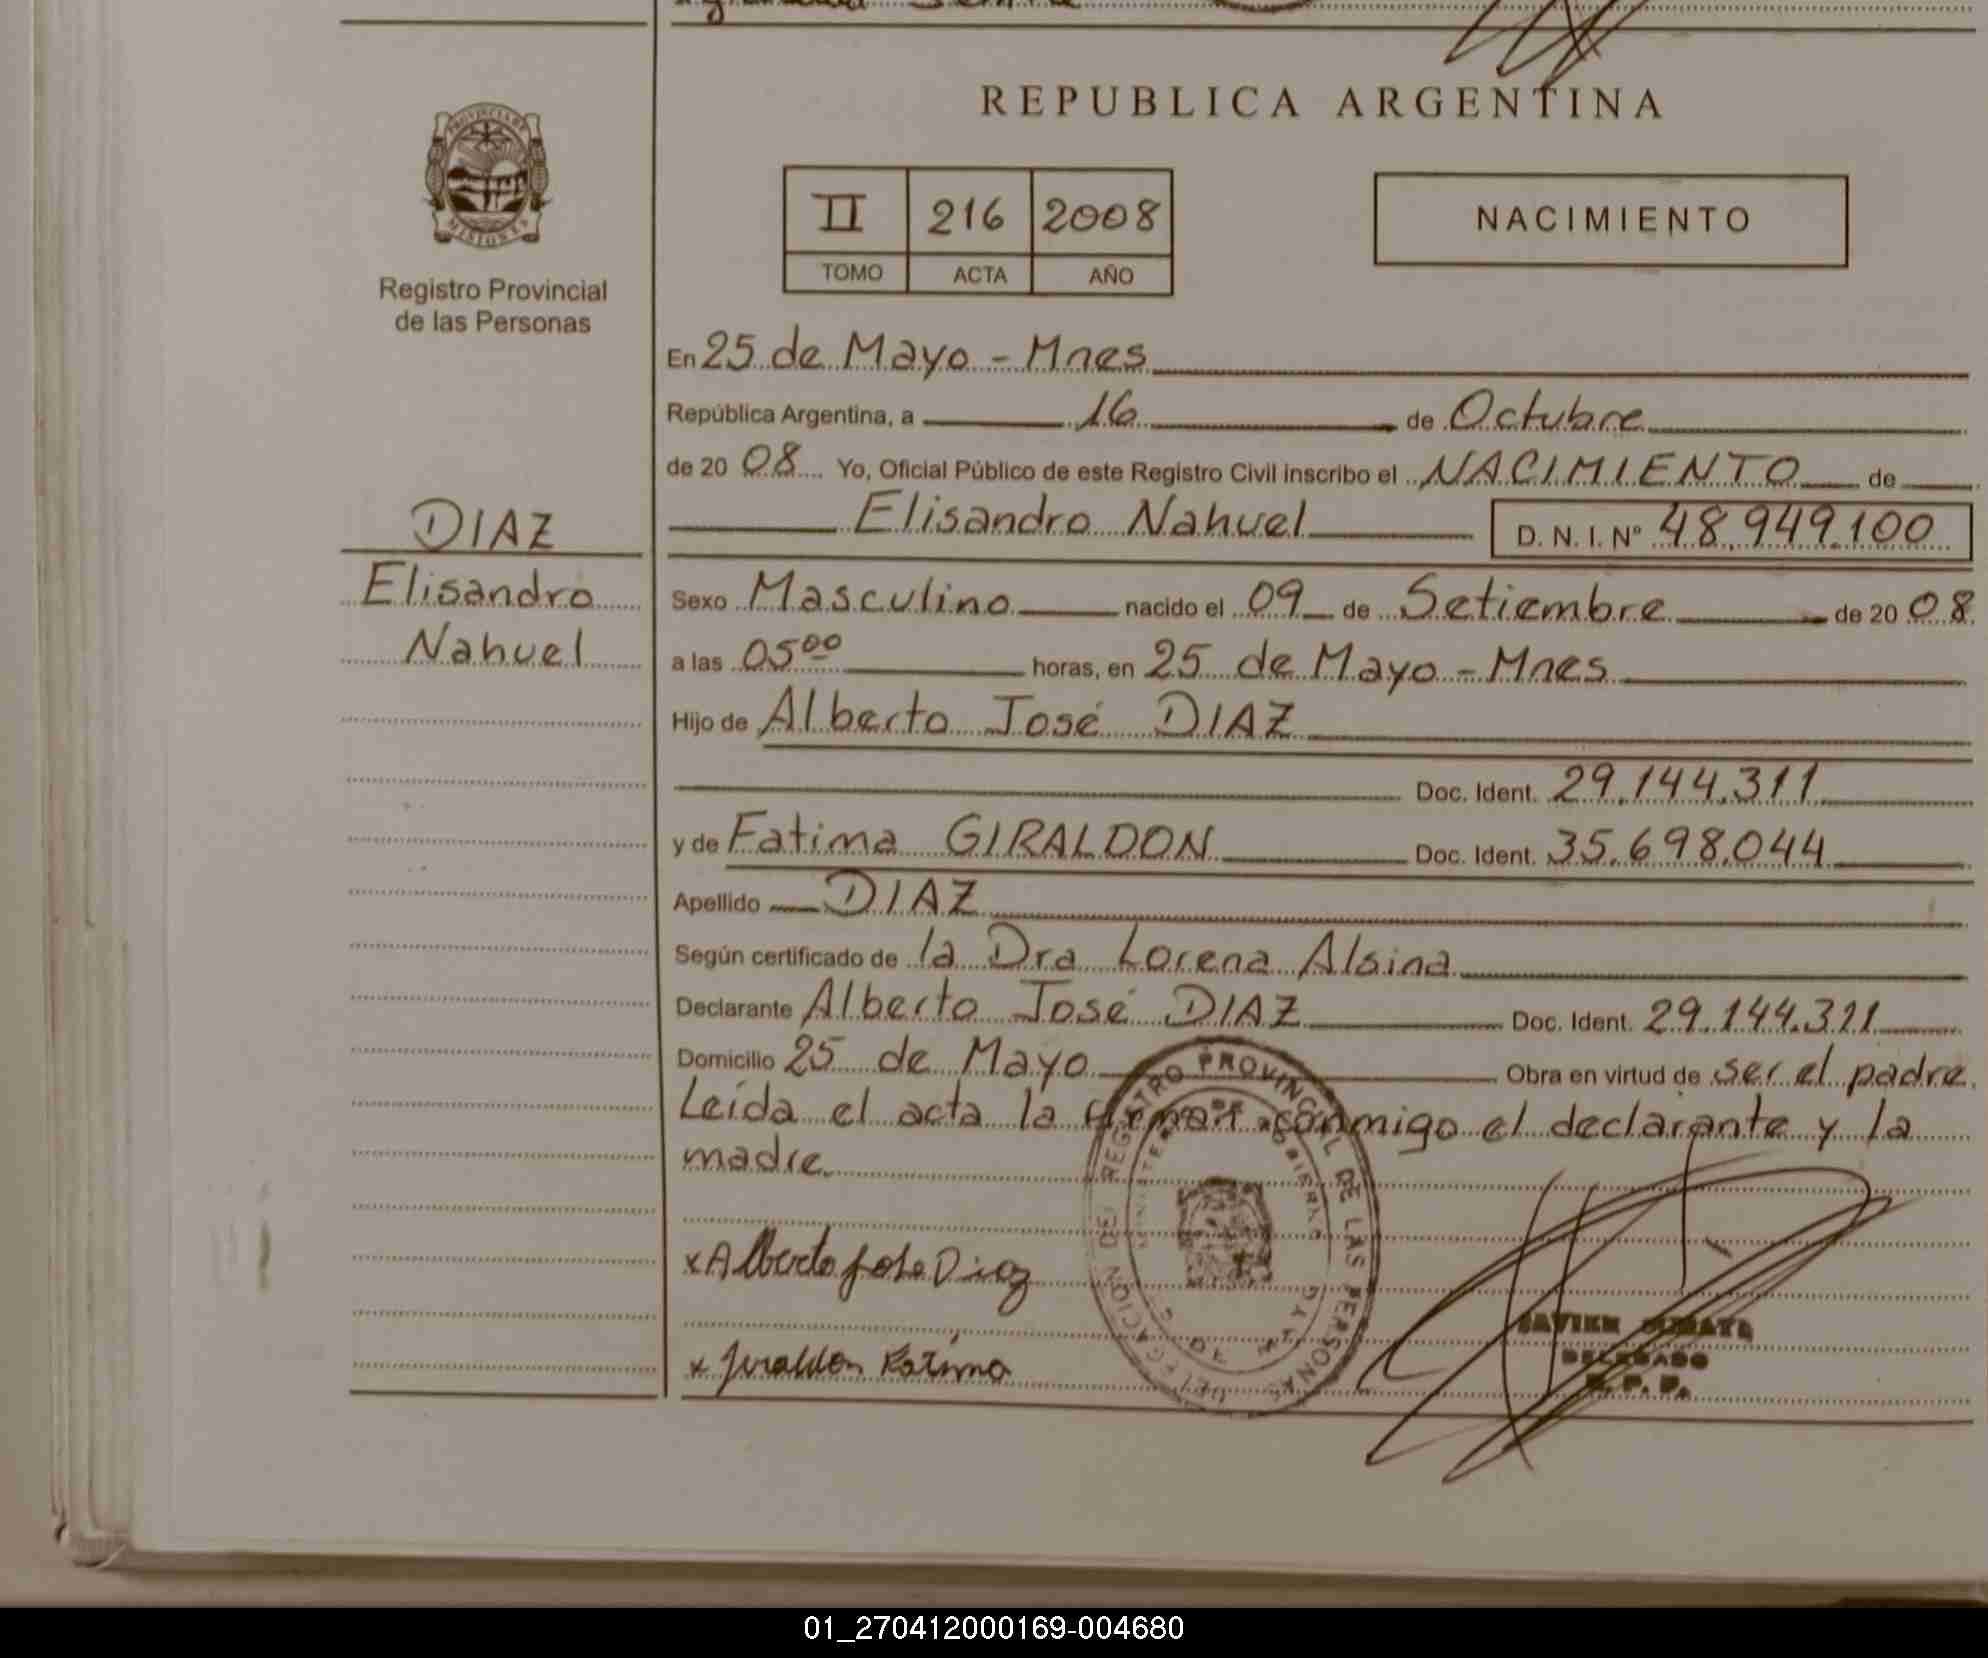 REPUBLICA ARGENTINA
PROVINCIA DE
MISIONES
Registro Provincial
de las Personas
II 216 2008
TOMO ACTA AÑO
NACIMIENTO
En 25 de Mayo - Mnes
República Argentina, a 16 de Octubre
de 20 08 Yo, Oficial Público de este Registro Civil inscribo el NACIMIENTO de
Elisandro Nahuel D. N. I. Nº 48.949.100
DIAZ
Elisandro
Nahuel
Sexo Masculino nacido el 09 de Setiembre de 20 08
a las 05⁰⁰ horas, en 25 de Mayo - Mnes
Hijo de Alberto José DIAZ
Doc. Ident. 29.144.311
y de Fatima GIRALDON Doc. Ident. 35.698.044
Apellido DIAZ
Según certificado de la Dra Lorena Alsina
Declarante Alberto José DIAZ Doc. Ident. 29.144.311
Domicilio 25 de Mayo Obra en virtud de ser el padre
Leída el acta la firman conmigo el declarante y la
madre
x Alberto José Diaz
x Giraldon Fatima
DELEGACIÓN DEL REGISTRO PROVINCIAL DE LAS PERSONAS
DE MAYO
JAVIER
DELEGADO
R. P. P.
01_270412000169-004680